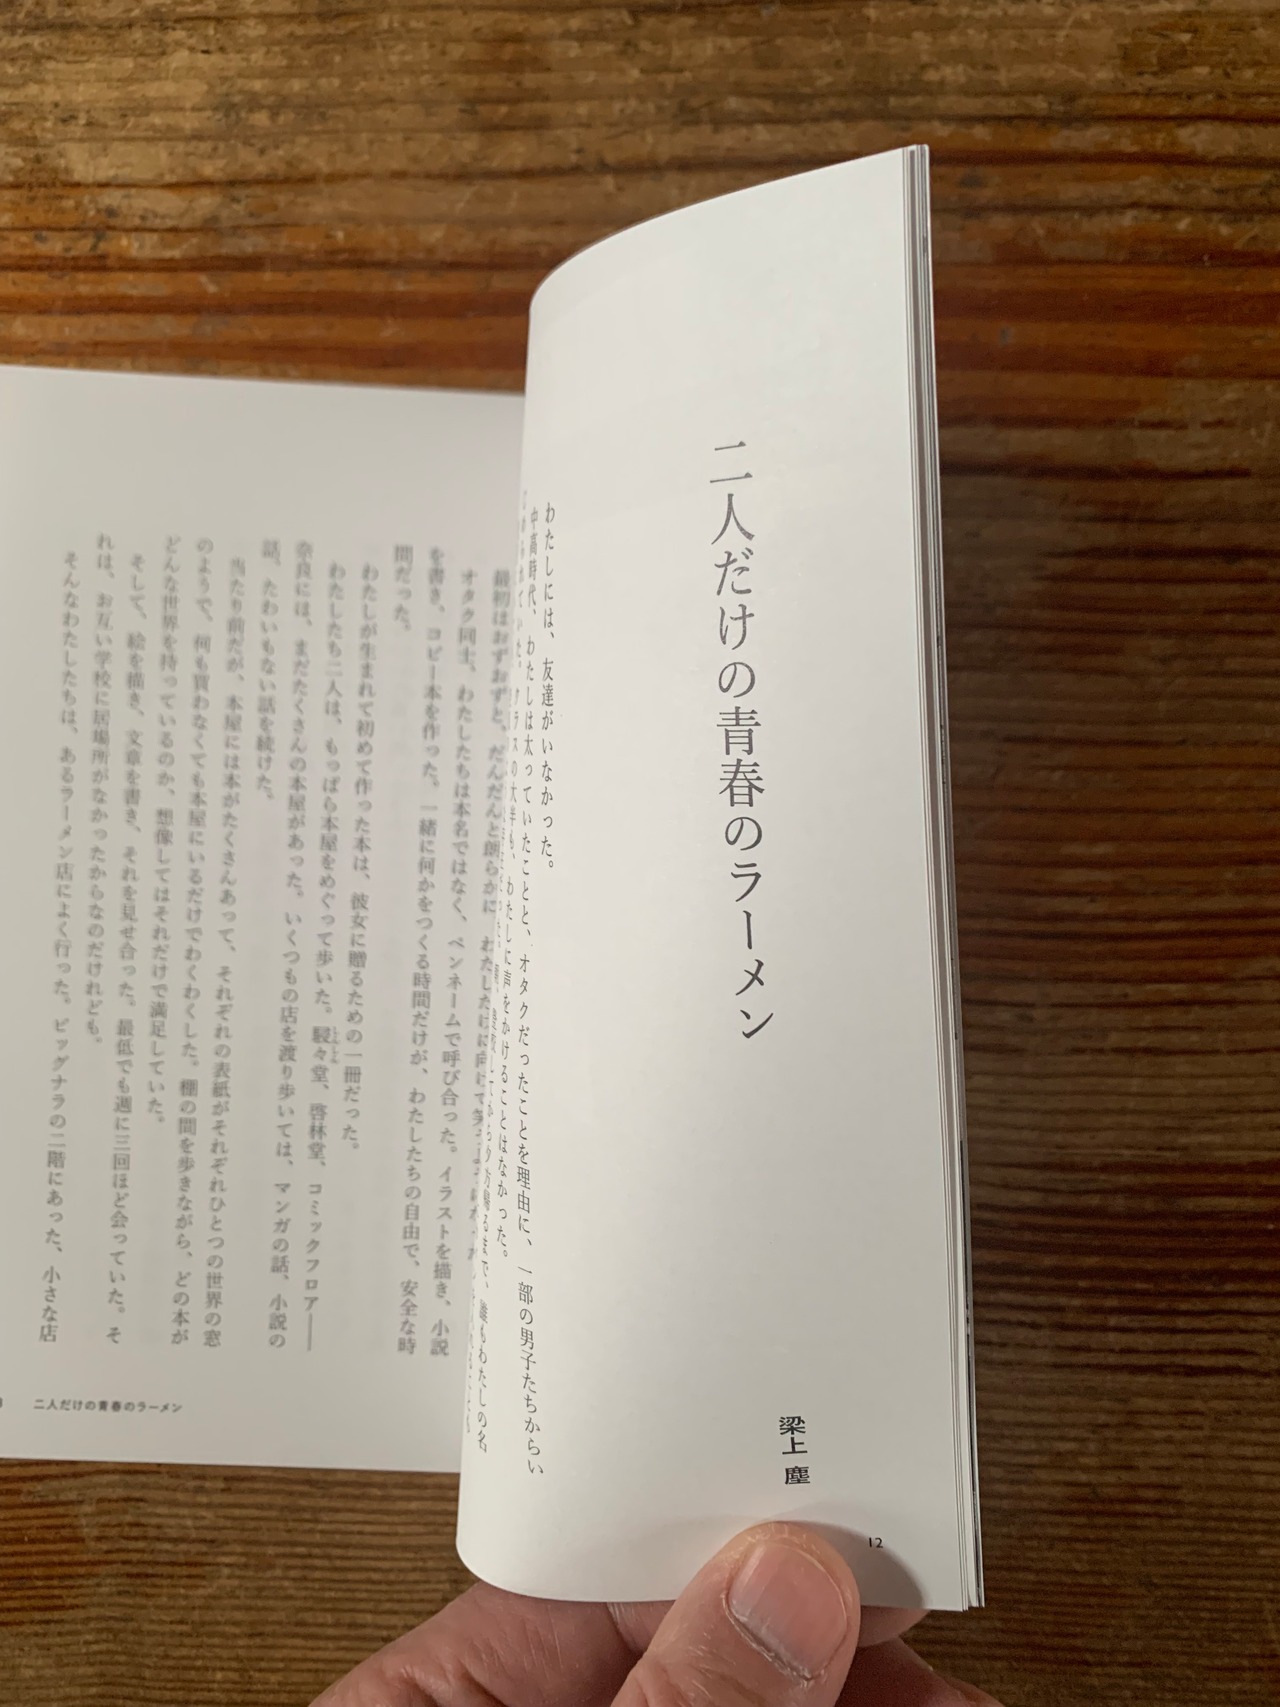 二人だけの青春のラーメン
梁上 塵
わたしには、友達がいなかった。
中高時代、わたしは太っていたことと、オタクだったことを理由に、一部の男子たちからい
クラスの大半も、わたしに声をかけることはなかった。
誰もわたしの名
12
最初はおずおずと、だんだんと朗らかに、わたしだけに向けて笑
オタク同士、わたしたちは本名ではなく、ペンネームで呼び合った。イラストを描き、小説
を書き、コピー本を作った。一緒に何かをつくる時間だけが、わたしたちの自由で、安全な時
間だった。
わたしが生まれて初めて作った本は、彼女に贈るための一冊だった。
わたしたち二人は、もっぱら本屋をめぐって歩いた。駸々堂、啓林堂、コミックフロア――
奈良には、まだたくさんの本屋があった。いくつもの店を渡り歩いては、マンガの話、小説の
話、たわいもない話を続けた。
当たり前だが、本屋には本がたくさんあって、それぞれの表紙がそれぞれひとつの世界の窓
のようで、何も買わなくても本屋にいるだけでわくわくした。棚の間を歩きながら、どの本が
どんな世界を持っているのか、想像してはそれだけで満足していた。
そして、絵を描き、文章を書き、それを見せ合った。最低でも週に三回ほど会っていた。そ
れは、お互い学校に居場所がなかったからなのだけれども。
そんなわたしたちは、あるラーメン店によく行った。ビッグナラの二階にあった、小さな店
二人だけの青春のラーメン